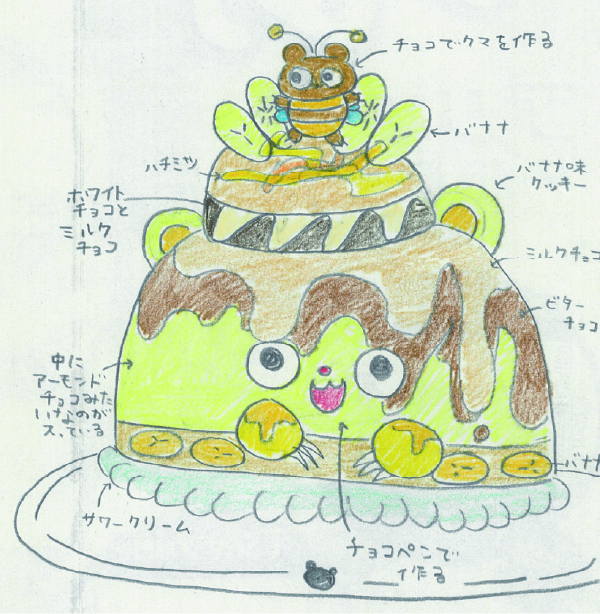 チョコでクマを作る
バナナ
ハチミツ
バナナ味
クッキー
ホワイト
チョコと
ミルク
チョコ
ミルクチョコ
ビター
チョコ
中に
アーモンド
チョコみた
いなのが
入っている
バナナ
サワークリーム
チョコペンで
作る